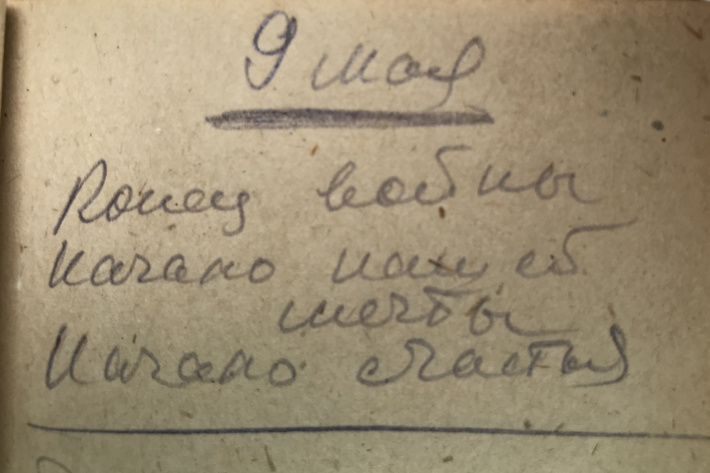 9 мая
Конец войны
Начало нашей
мечты
Начало счастья